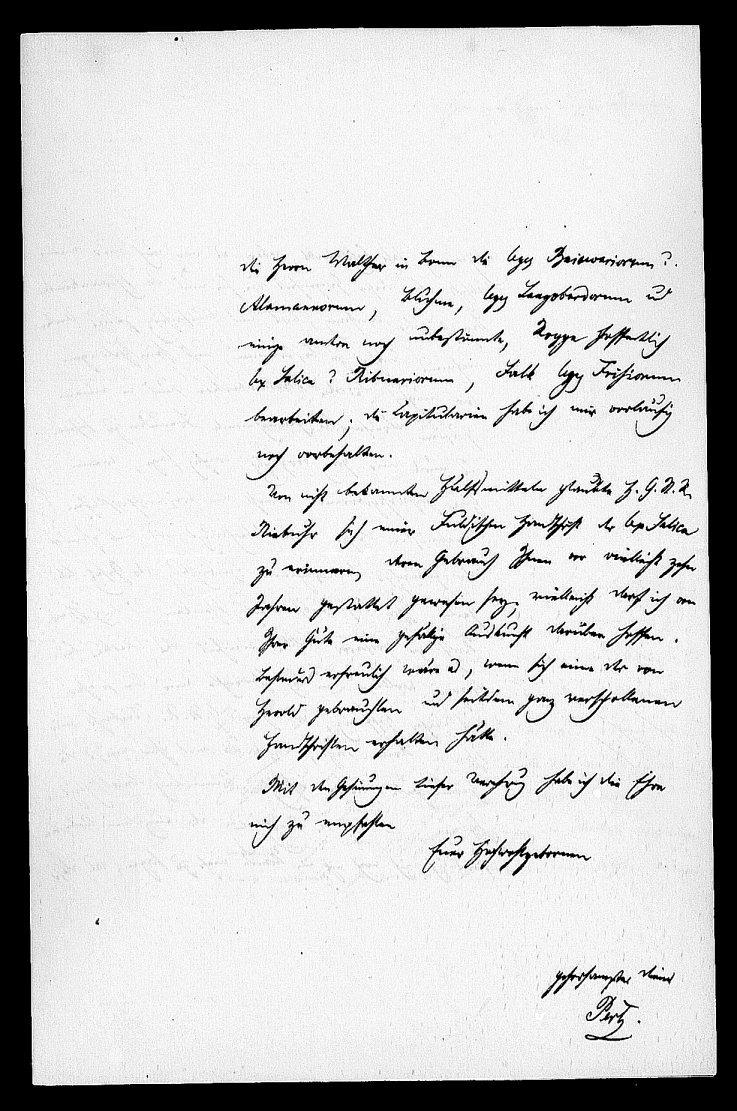 die Herrn Walther in Bonn die legg Baiuvariorum?.
Alamannorum, Bluhme, legg Langobardorum und
einige andere noch unbestimmte, Koppe hoffentlich
lex Salica? Ribuariorum, Falk legg Frisionum
bearbeiten; die Capitularien habe ich mir vorläufig
noch vorbehalten.
Von nicht bekannten Hülfsmitteln glaubte H. G. R. R.
Niebuhr sich einer Fuldischen Handschrift der lex Salica
zu erinnern, deren Gebrauch Ihnen vor vielleicht zehn
Jahren gestattet gewesen sey, vielleicht darf ich von
Ihrer Güte eine gefällige Auskunft darüber hoffen.
Besonders erfreulich wäre es, wenn sich eine der von
Herold gebrauchten und seitdem ganz verschollenen
Handschriften erhalten hätte.
Mit den Gesinnungen tiefer Verehrung habe ich die Ehre
mich zu empfehlen
Euer Hochwohlgebornen
gehorsamster Diener
Pertz.